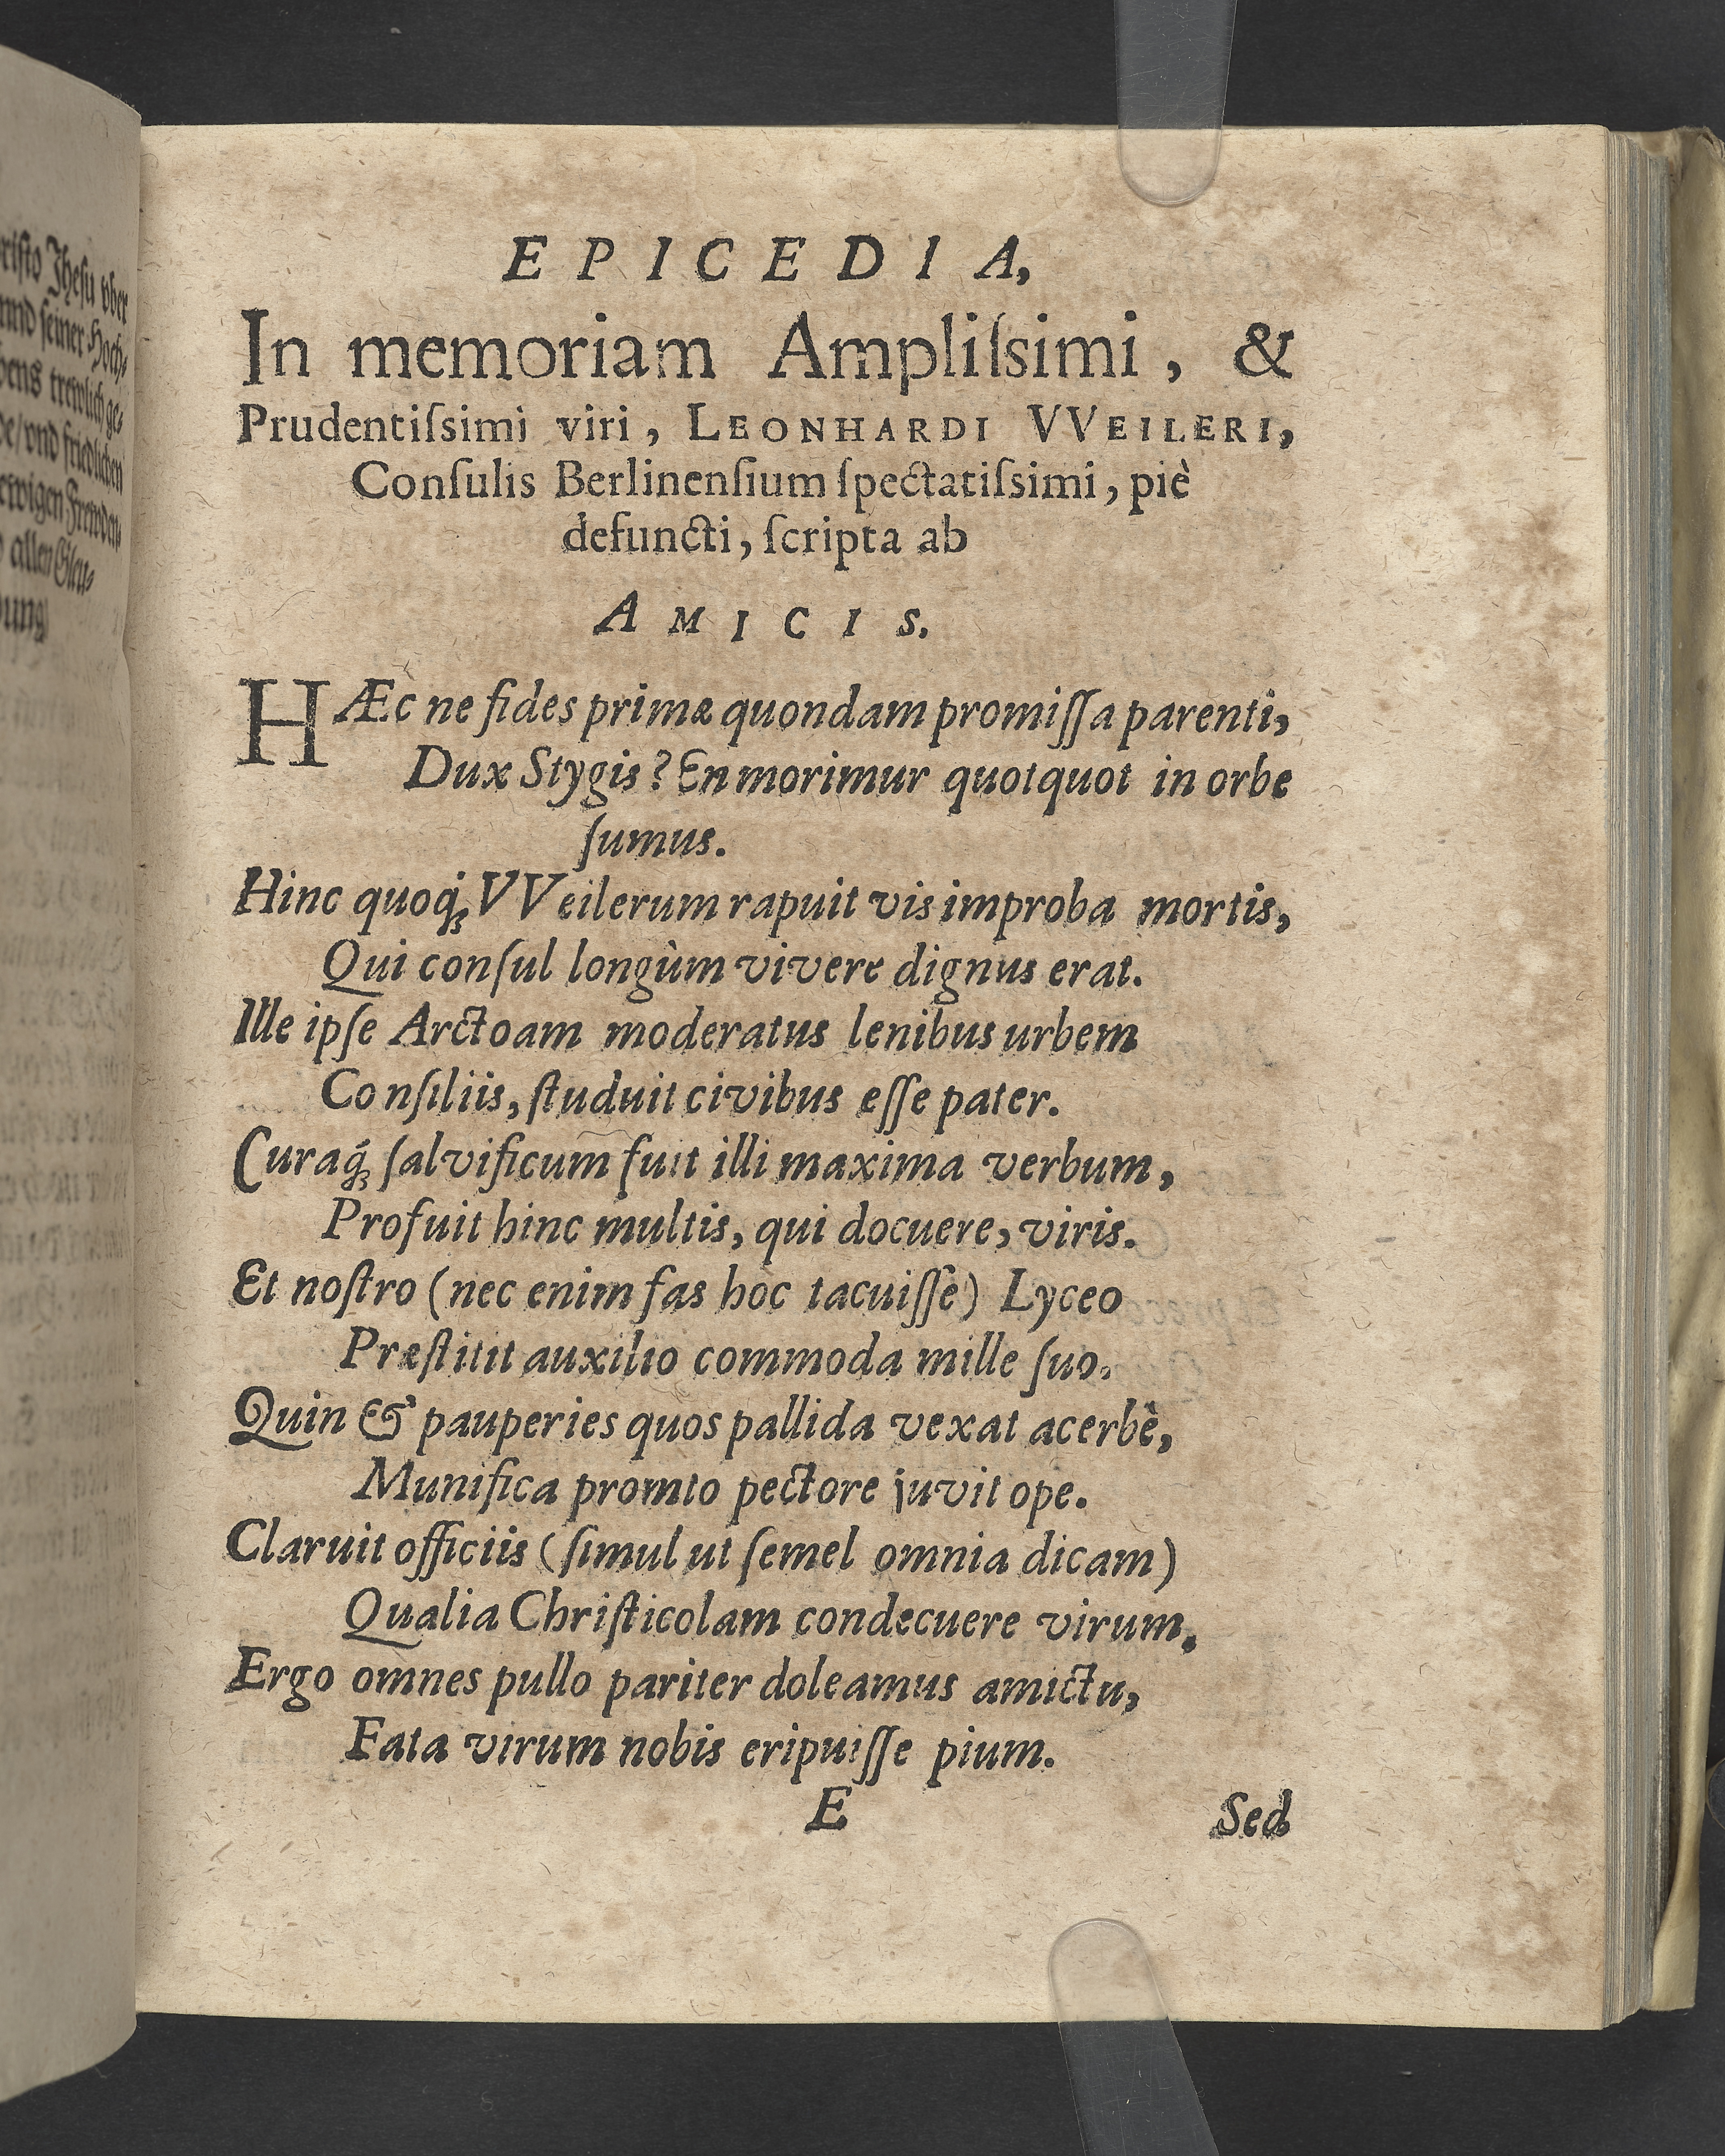 riſto Jheſu vber
nnd ſeiner Hoch-
bens trewlich ge-
de/vnd friedlichen
ewigen Frewden-
allen Gleu-
bung
EPICEDIA,
In memoriam Ampliſsimi, &
Prudentiſsimi viri, LEONHARDI VVEILERI,
Conſulis Berlinenſium ſpectatiſsimi, piè
defuncti, ſcripta ab
AMICIS.
HÆc ne fides primæ quondam promiſſa parenti,
Dux Stygis? En morimur quotquot in orbe
ſumus.
Hinc quoq; VVeilerum rapuit vis improba mortis,
Qui conſul longùm vivere dignus erat.
Ille ipſe Arctoam moderatus lenibus urbem
Conſiliis, ſtuduit civibus eſſe pater.
Curaq́; ſalvificum fuit illi maxima verbum,
Profuit hinc multis, qui docuere, viris.
Et noſtro (nec enim fas hoc tacuiſſe) Lyceo
Præſtitit auxilio commoda mille ſuo.
Quin & pauperies quos pallida vexat acerbè,
Munifica promto pectore juvit ope.
Claruit officiis (ſimul ut ſemel omnia dicam)
Qualia Chriſticolam condecuere virum.
Ergo omnes pullo pariter doleamus amictu,
Fata virum nobis eripuiſſe pium.
E Sed